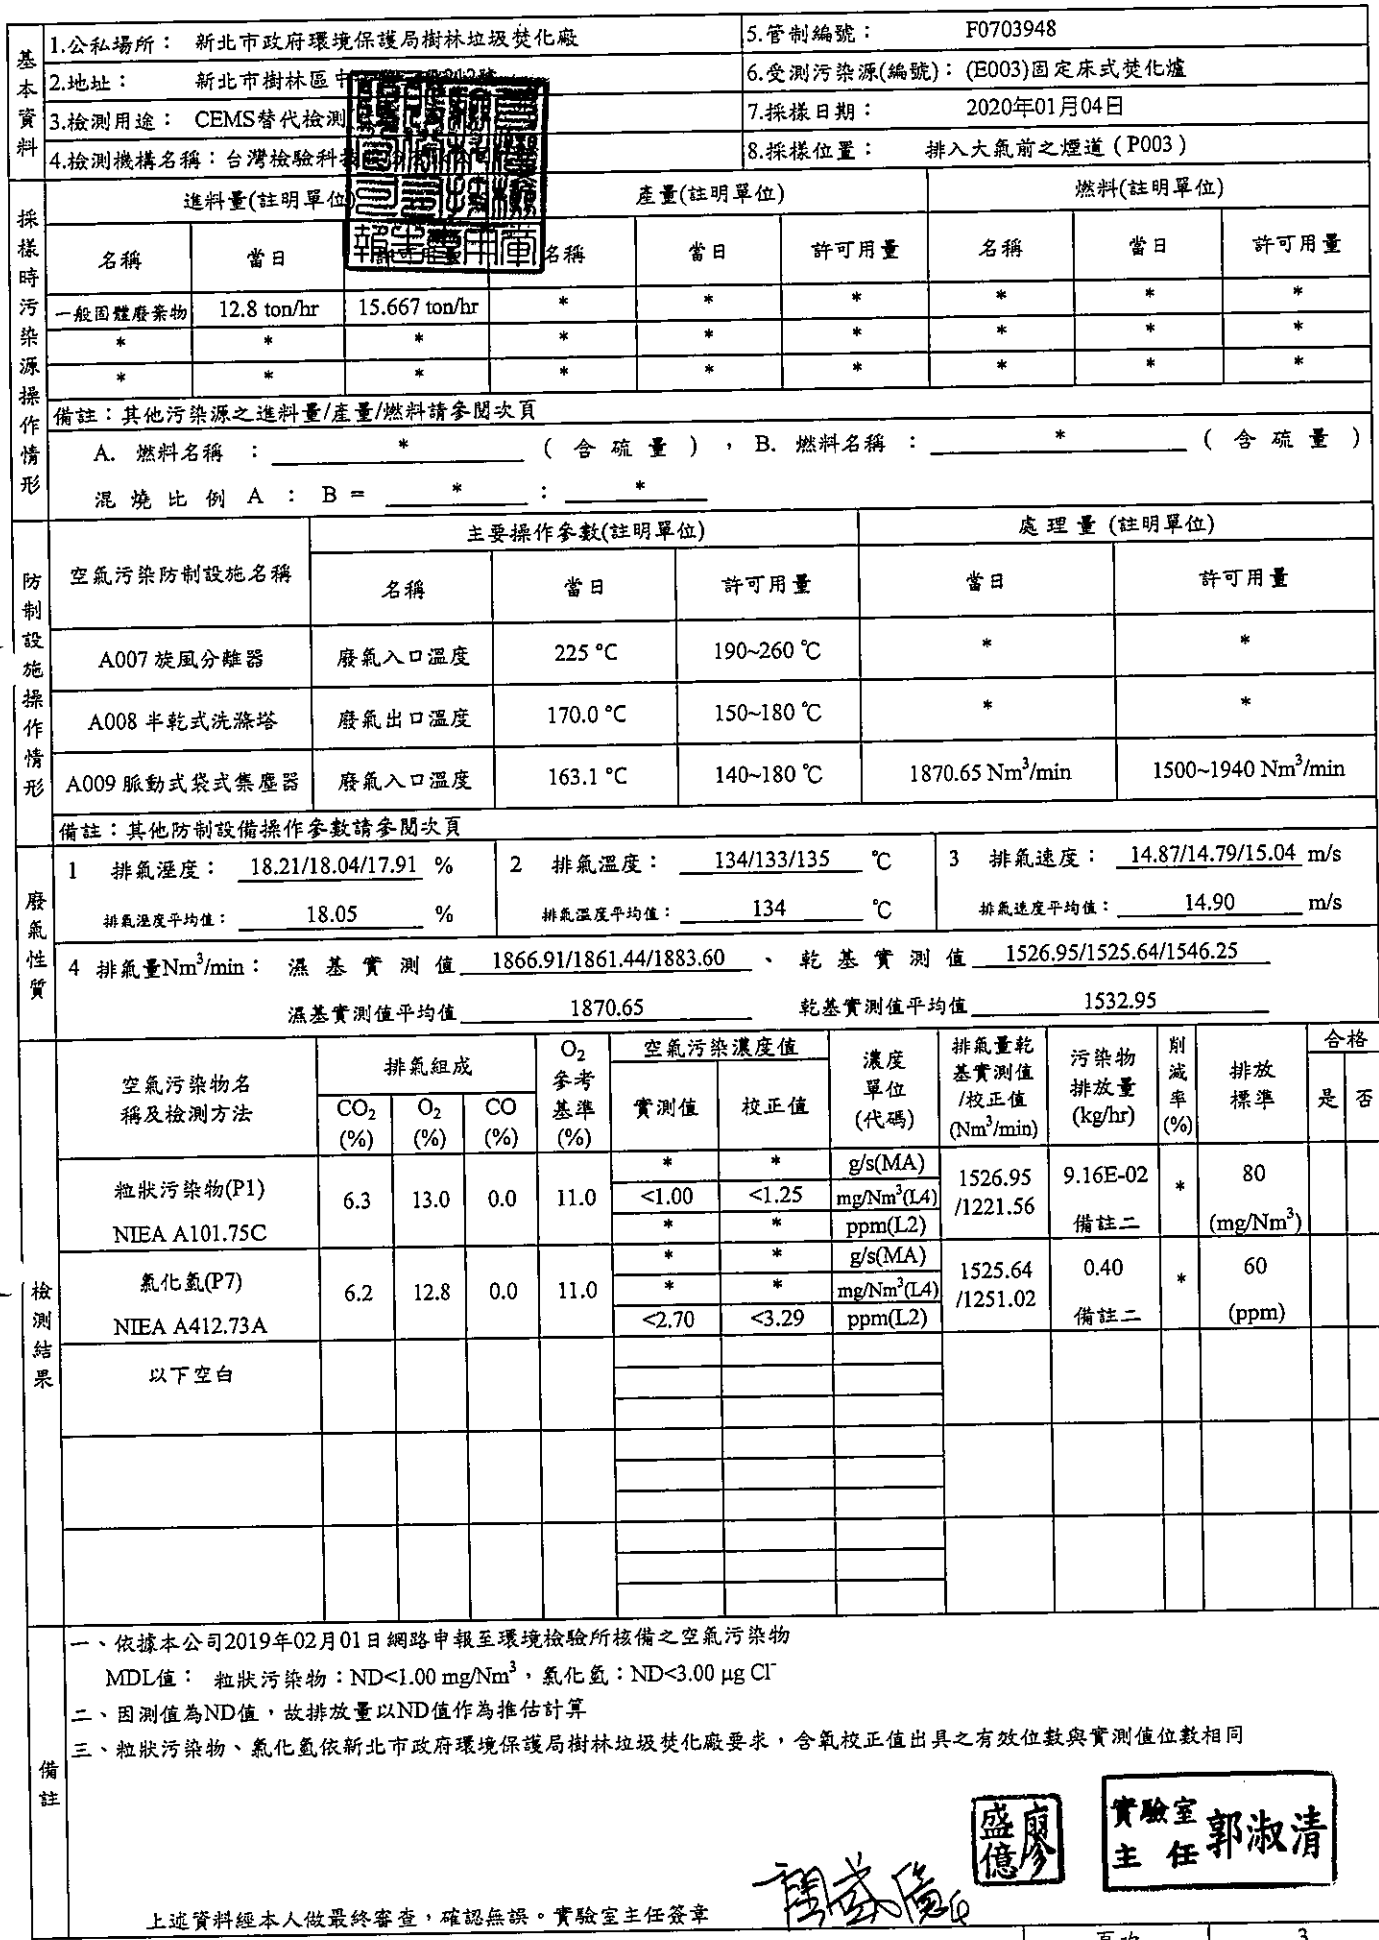 基本資料
1.公私場所： 新北市政府環境保護局樹林垃圾焚化廠
5.管制編號： F0703948
2.地址： 新北市樹林區
6.受測污染源(編號)： (E003)固定床式焚化爐
3.檢測用途： CEMS替代檢測
7.採樣日期： 2020年01月04日
4.檢測機構名稱：台灣檢驗科技
8.採樣位置： 排入大氣前之煙道（P003）
採樣時污染源操作情形
進料量(註明單位) 產量(註明單位) 燃料(註明單位)
名稱 當日 許可用量 名稱 當日 許可用量 名稱 當日 許可用量
一般固體廢棄物 12.8 ton/hr 15.667 ton/hr * * * * * *
* * * * * * * * *
* * * * * * * * *
備註：其他污染源之進料量/產量/燃料請參閱次頁
A. 燃料名稱 ： * ( 含 硫 量 ) ， B. 燃料名稱 ： * ( 含 硫 量 )
混 燒 比 例 A ： B = * ： *
防制設施操作情形
空氣污染防制設施名稱 主要操作參數(註明單位) 處 理 量 (註明單位)
名稱 當日 許可用量 當日 許可用量
A007 旋風分離器 廢氣入口溫度 225 ℃ 190~260 ℃ * *
A008 半乾式洗滌塔 廢氣出口溫度 170.0 ℃ 150~180 ℃ * *
A009 脈動式袋式集塵器 廢氣入口溫度 163.1 ℃ 140~180 ℃ 1870.65 Nm³/min 1500~1940 Nm³/min
備註：其他防制設備操作參數請參閱次頁
廢氣性質
1 排氣溼度： 18.21/18.04/17.91 % 2 排氣溫度： 134/133/135 ℃ 3 排氣速度： 14.87/14.79/15.04 m/s
排氣溼度平均值： 18.05 % 排氣溫度平均值： 134 ℃ 排氣速度平均值： 14.90 m/s
4 排氣量Nm³/min： 濕 基 實 測 值 1866.91/1861.44/1883.60 、 乾 基 實 測 值 1526.95/1525.64/1546.25
濕基實測值平均值 1870.65 乾基實測值平均值 1532.95
檢測結果
空氣污染物名稱及檢測方法 排氣組成 O₂參考基準(%) 空氣污染濃度值 濃度單位(代碼) 排氣量乾基實測值/校正值(Nm³/min) 污染物排放量(kg/hr) 削減率(%) 排放標準 合格
CO₂(%) O₂(%) CO(%) 實測值 校正值 是 否
粒狀污染物(P1) NIEA A101.75C 6.3 13.0 0.0 11.0 * * g/s(MA) 1526.95/1221.56 9.16E-02 備註二 * 80 (mg/Nm³)
<1.00 <1.25 mg/Nm³(L4)
* * ppm(L2)
氯化氫(P7) NIEA A412.73A 6.2 12.8 0.0 11.0 * * g/s(MA) 1525.64/1251.02 0.40 備註二 * 60 (ppm)
* * mg/Nm³(L4)
<2.70 <3.29 ppm(L2)
以下空白
備註
一、依據本公司2019年02月01日網路申報至環境檢驗所核備之空氣污染物
MDL值： 粒狀污染物：ND<1.00 mg/Nm³，氯化氫：ND<3.00 μg Cl⁻
二、因測值為ND值，故排放量以ND值作為推估計算
三、粒狀污染物、氯化氫依新北市政府環境保護局樹林垃圾焚化廠要求，含氧校正值出具之有效位數與實測值位數相同
廖盛億
實驗室主任 郭淑清
上述資料經本人做最終審查，確認無誤。實驗室主任簽章
頁次 3